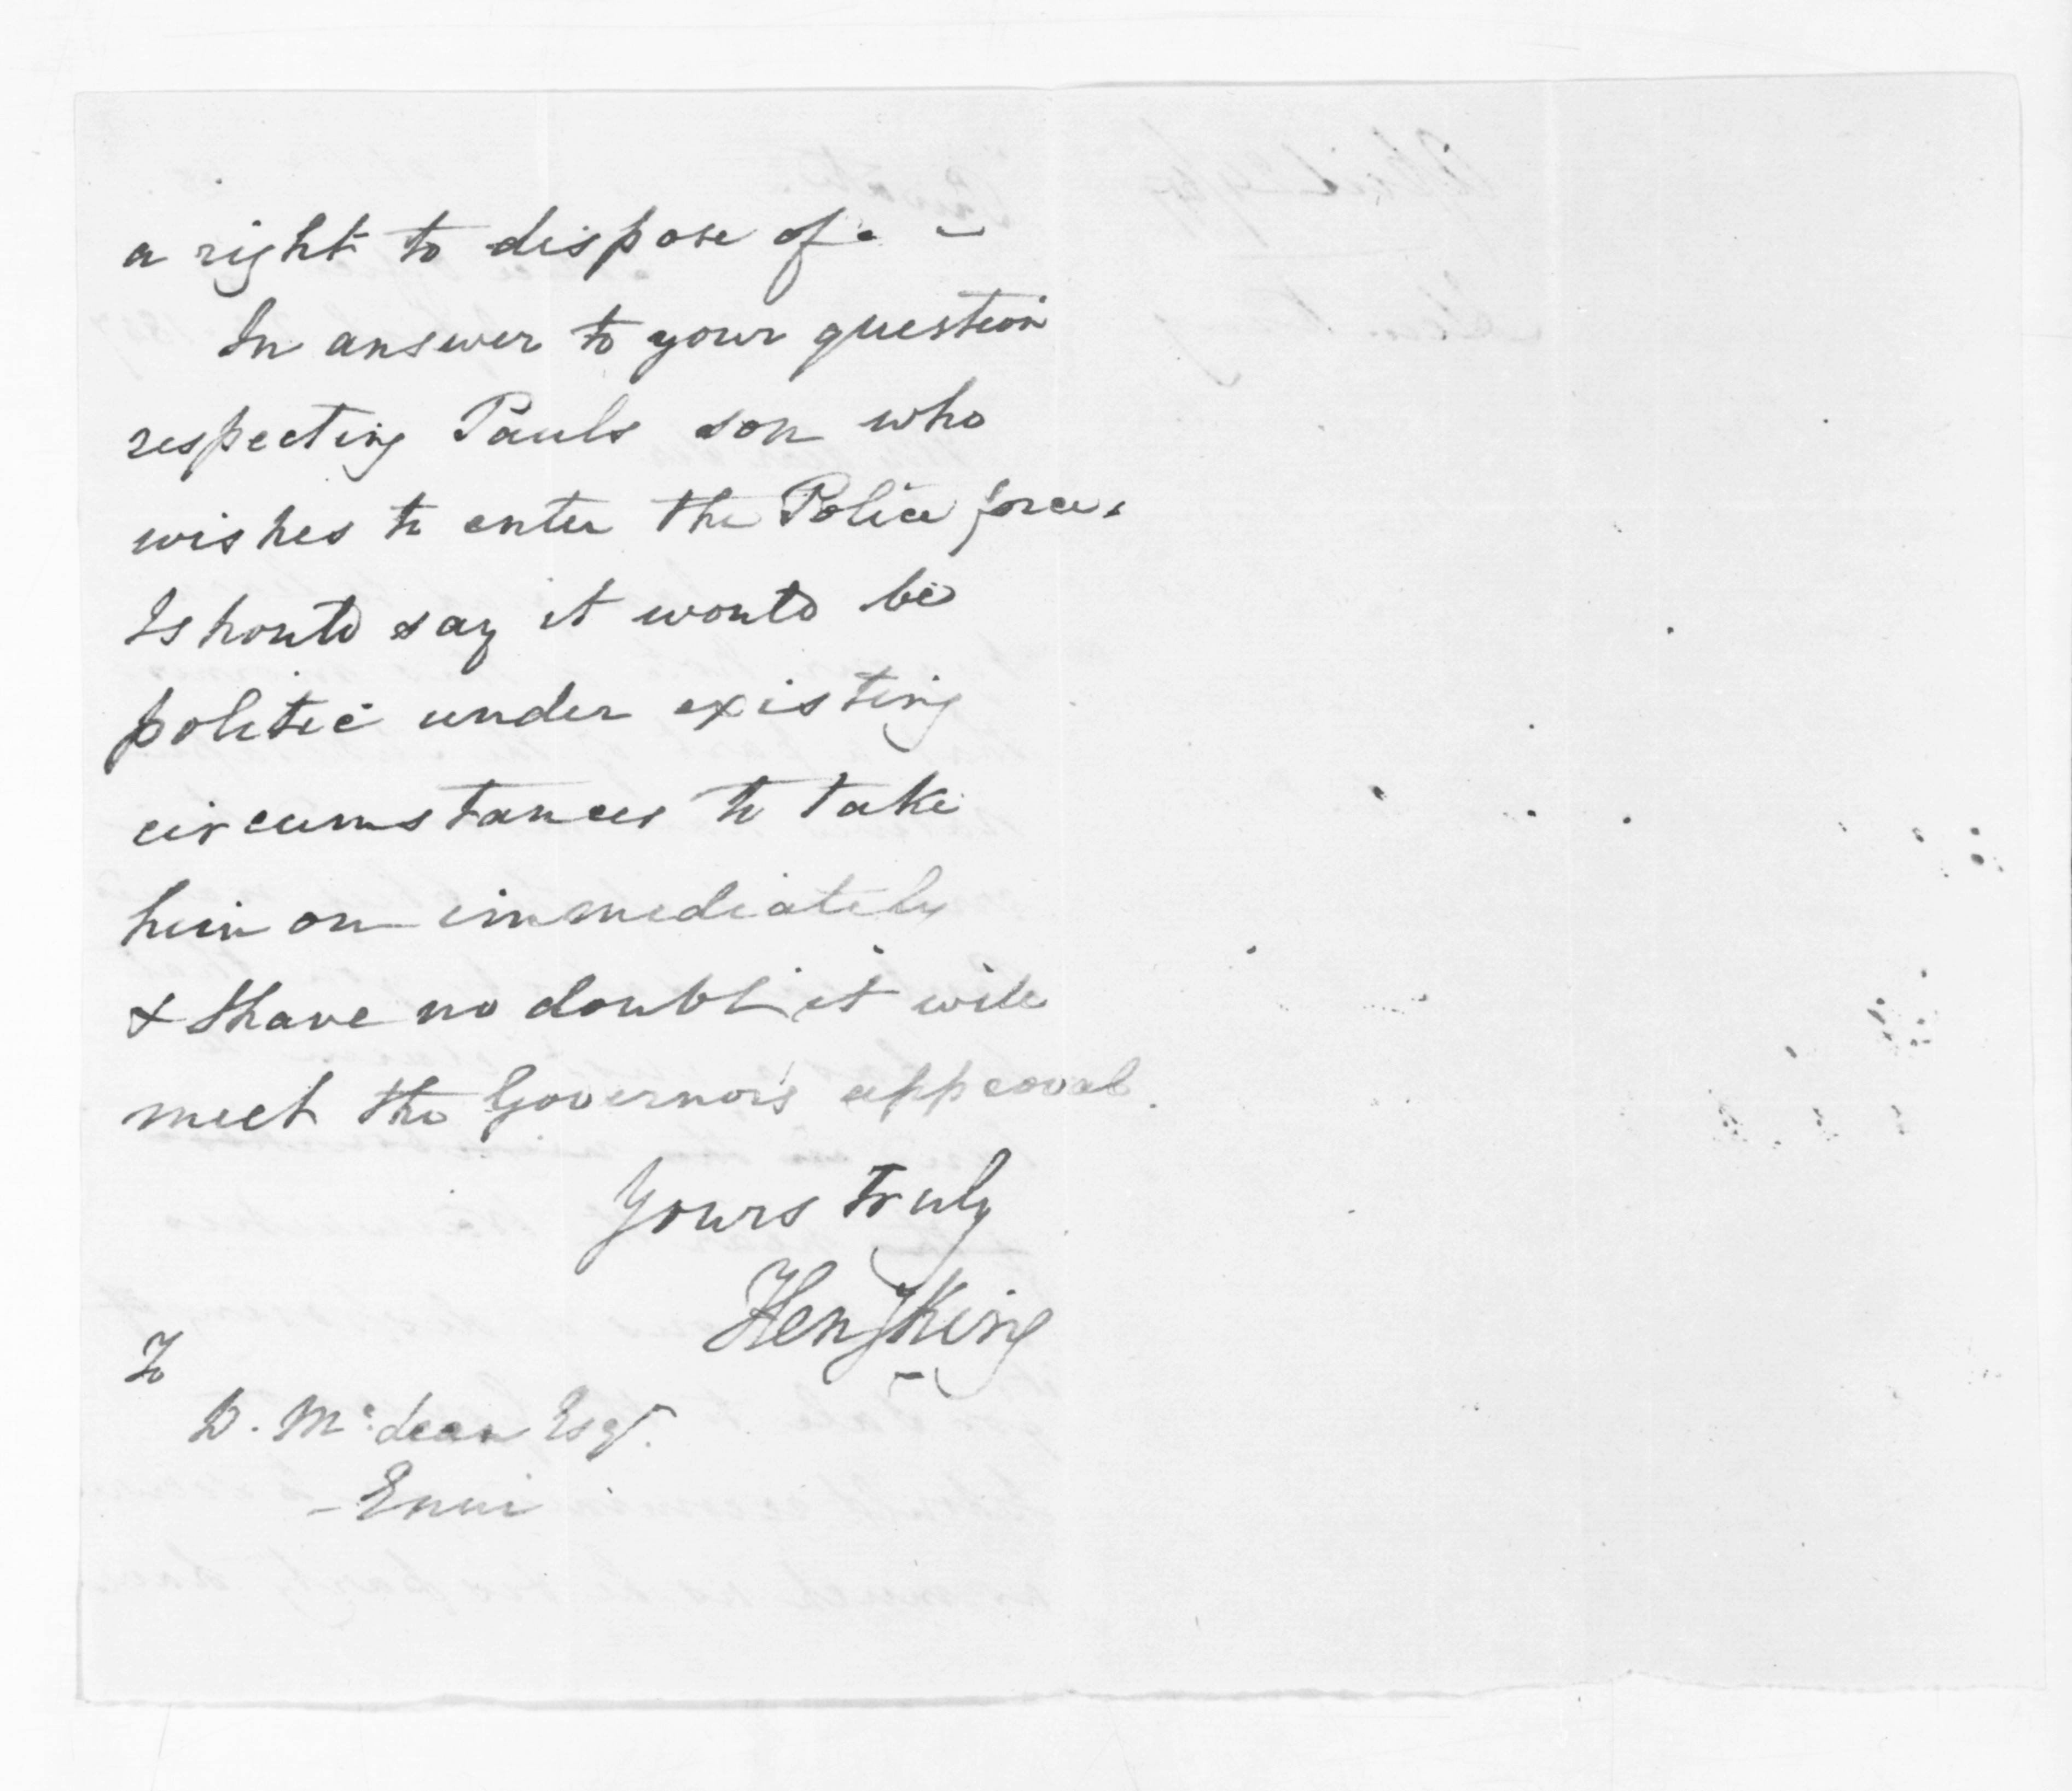 a right to dispose of. –
In answer to your question
respecting Pauls son who
wishes to enter the Police force,
I should say it would be
politic under existing
circumstances to take
him on immediately
& I have no doubt it will
meet the Governor's approval.
Yours truly
Hen King
To
D. McLean Esqr.